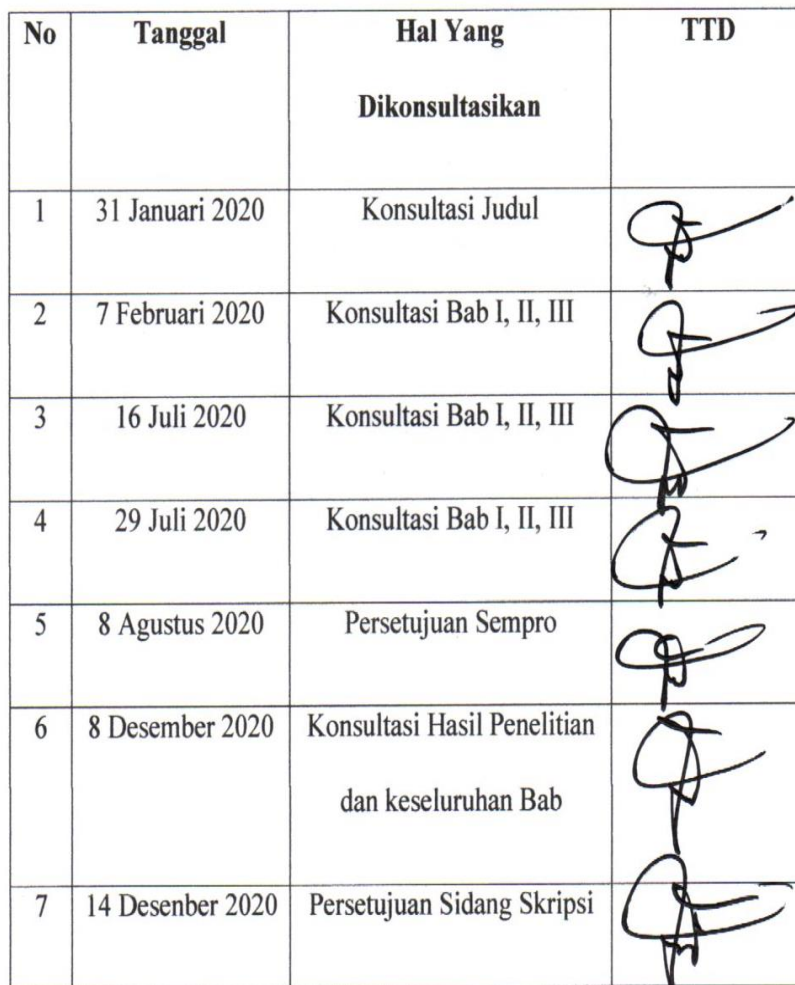 No Tanggal Hal Yang TTD
Dikonsultasikan
1 31 Januari 2020 Konsultasi Judul
2 7 Februari 2020 Konsultasi Bab I, II, III
3 16 Juli 2020 Konsultasi Bab I, II, III
4 29 Juli 2020 Konsultasi Bab I, II, III
5 8 Agustus 2020 Persetujuan Sempro
6 8 Desember 2020 Konsultasi Hasil Penelitian
dan keseluruhan Bab
7 14 Desenber 2020 Persetujuan Sidang Skripsi